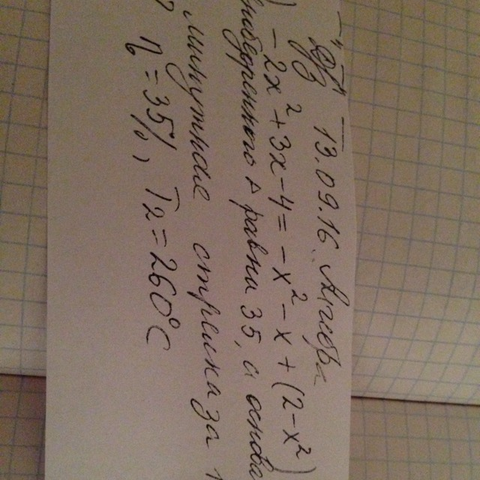 ДЗ 13.09.16. Алгебра
) -2x² + 3x - 4 = -x² - x + (2 - x²)
нобедренного ∆ равна 35, а основа
минутная стрелка за
? η = 35%, T₂ = 260°C